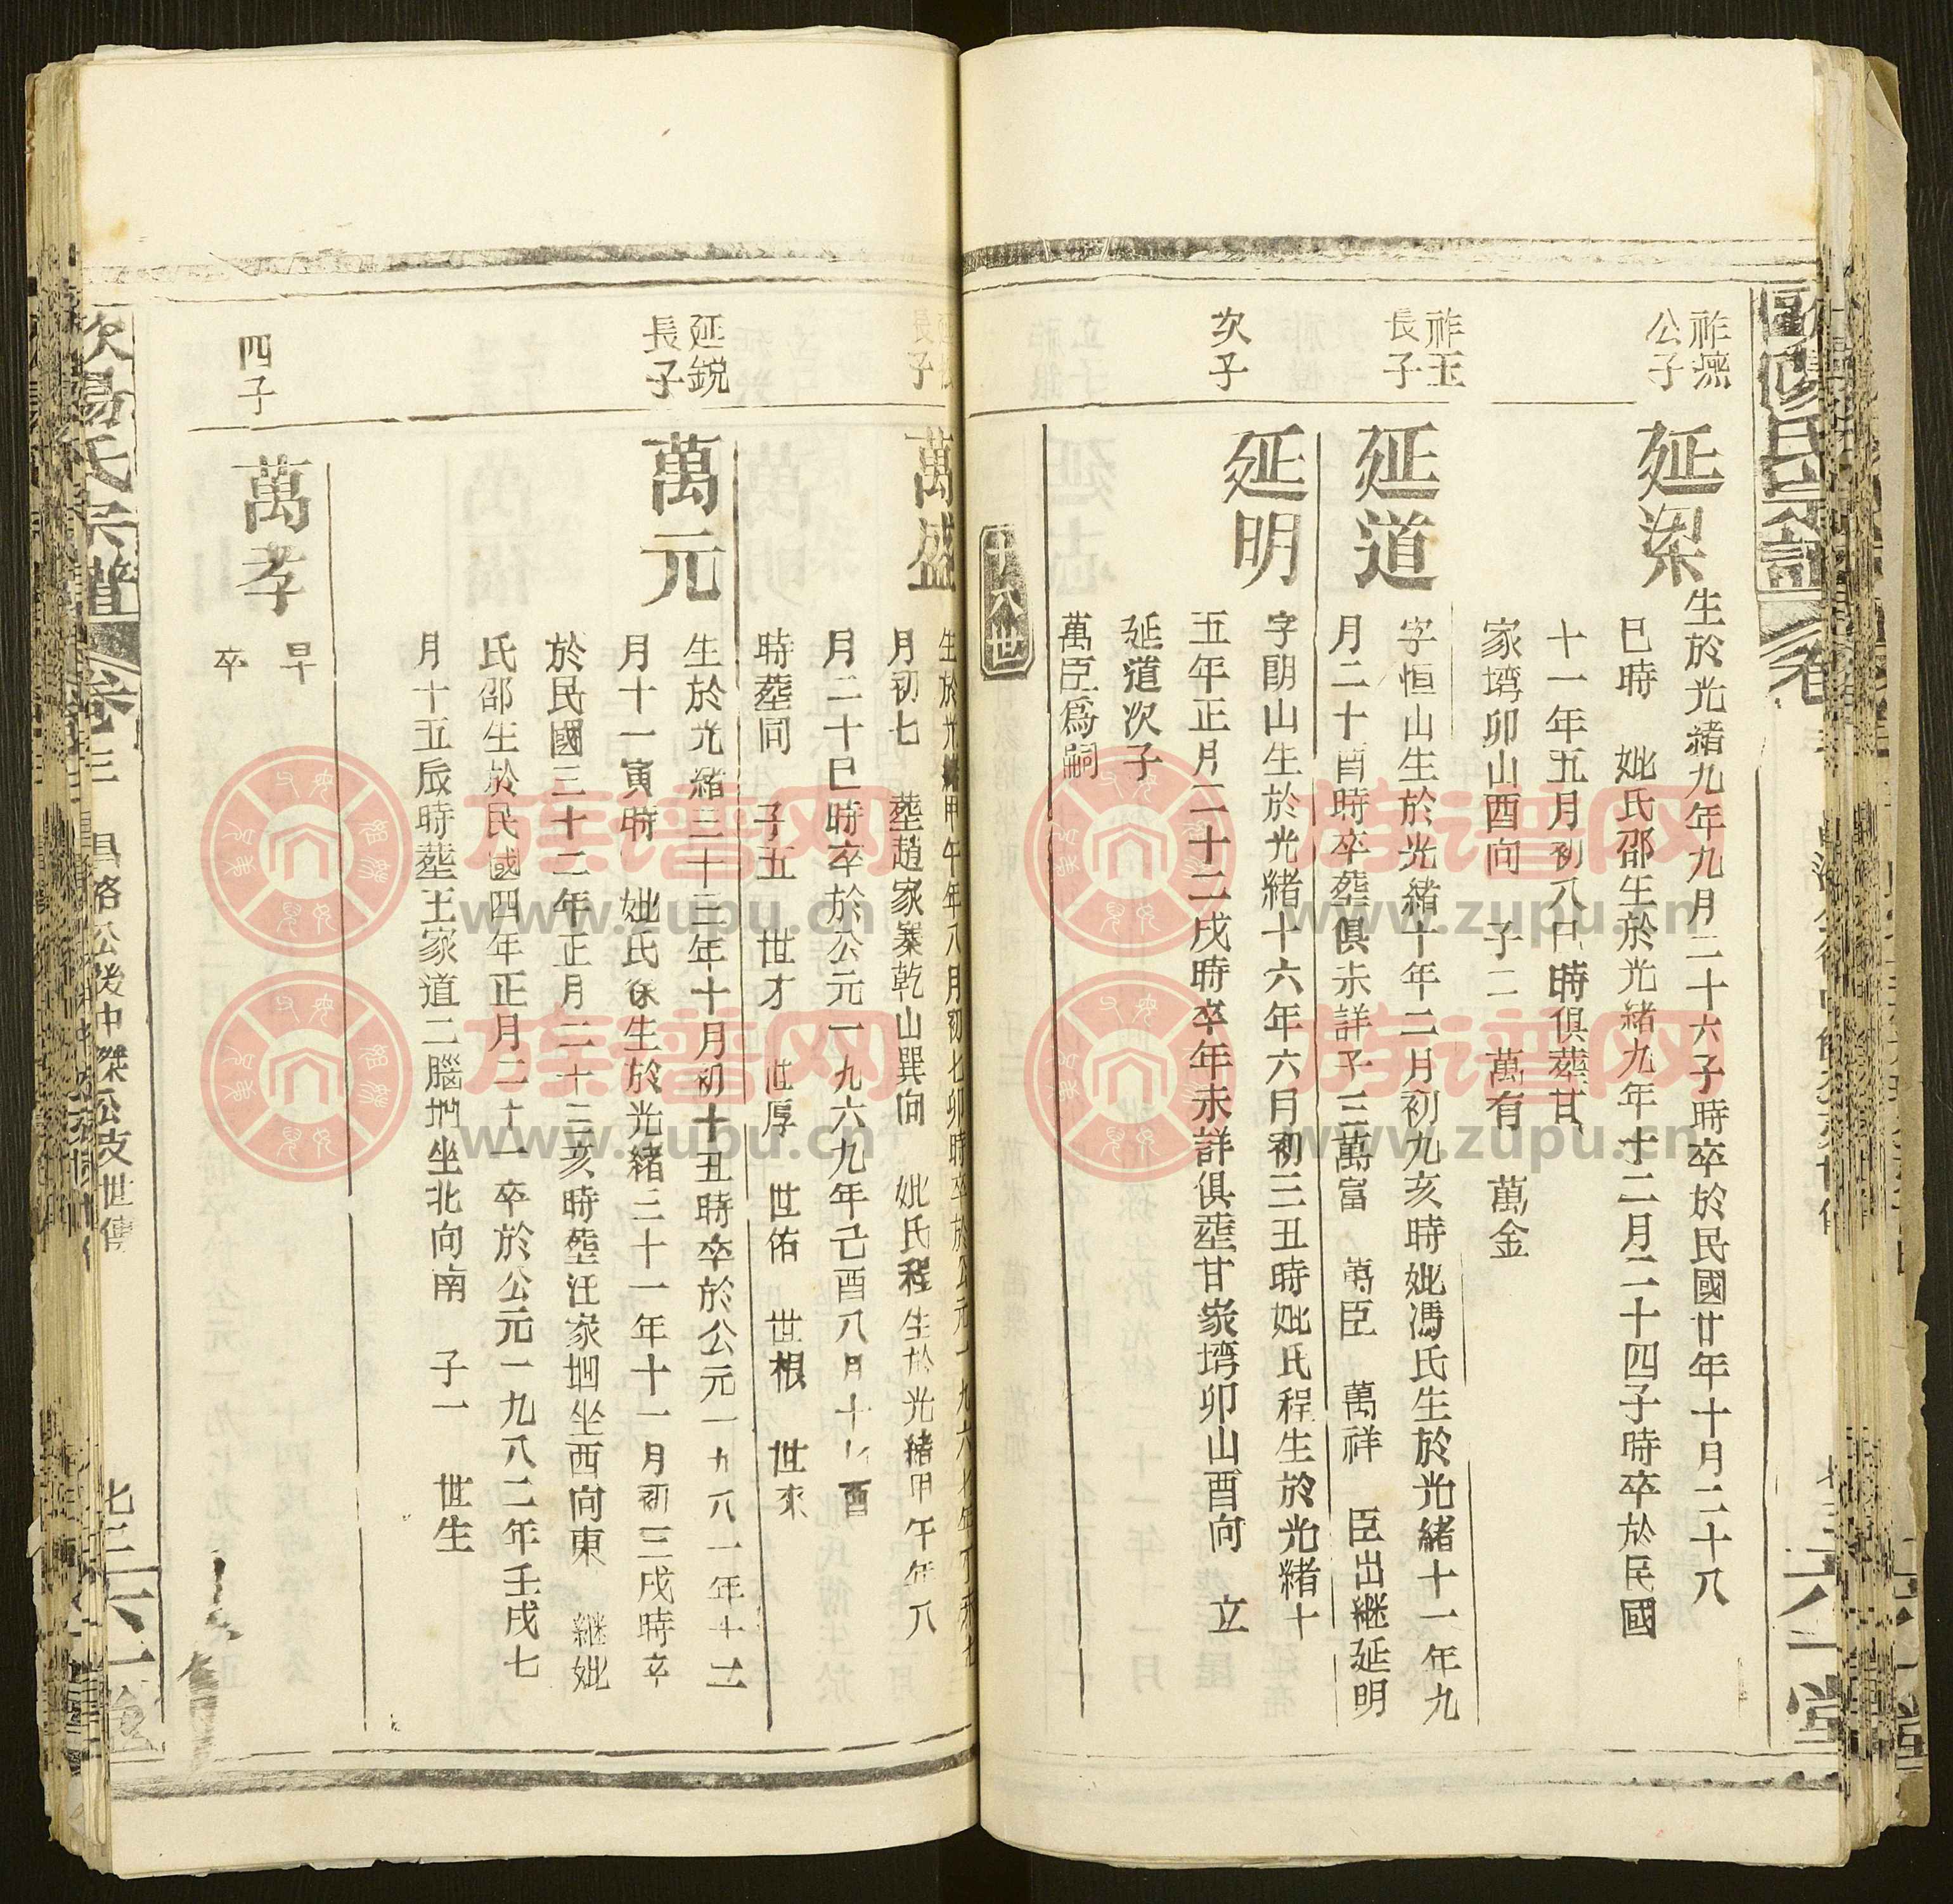 歐陽氏宗譜
卷三
六一堂
祚燕
公子
延梁
生於光緒九年九月二十六子時卒於民國廿年十月二十八
巳時　妣氏邵生於光緒九年十二月二十四子時卒於民國
十一年五月初八巳時俱塟甘
家塆卯山酉向　子二　萬有　萬金
祚玉
長子
延道
字恒山生於光緒十年二月初九亥時妣馮氏生於光緒十一年九
月二十酉時卒塟俱未詳子三萬富　萬臣　萬祥　臣出継延明
次子
延明
字朗山生於光緒十六年六月初三丑時妣氏程生於光緒十
五年正月二十二戌時卒年未詳俱塟甘家塆卯山酉向　立
延道次子
萬臣爲嗣
十六世
長子
萬盛
生於光緒甲午年八月初七卯時卒於公元一九六七年丁未七
月初七　塟趙家暴乾山巽向　妣氏程生於光緒甲午年八
月二十巳時卒於公元一九六九年己酉八月十七酉
時塟同　子五　世才　世厚　世佑　世根　世來
延銳
長子
萬元
生於光緒三十三年十月初十丑時卒於公元一九八一年十二
月十一寅時　妣氏徐生於光緒三十一年十一月初三戌時卒
於民國三十二年正月二十三亥時塟汪家垇坐西向東　継妣
氏邵生於民國四年正月二十一卒於公元一九八二年壬戌七
月十五辰時塟王家道二腦垇坐北向南　子一　世生
四子
萬孝
早
卒
歐陽氏宗譜
卷三
昌洛公後中傑公支世傳
七三
六一堂
族谱网
www.zupu.cn
族谱网
www.zupu.cn
族谱网
www.zupu.cn
族谱网
www.zupu.cn